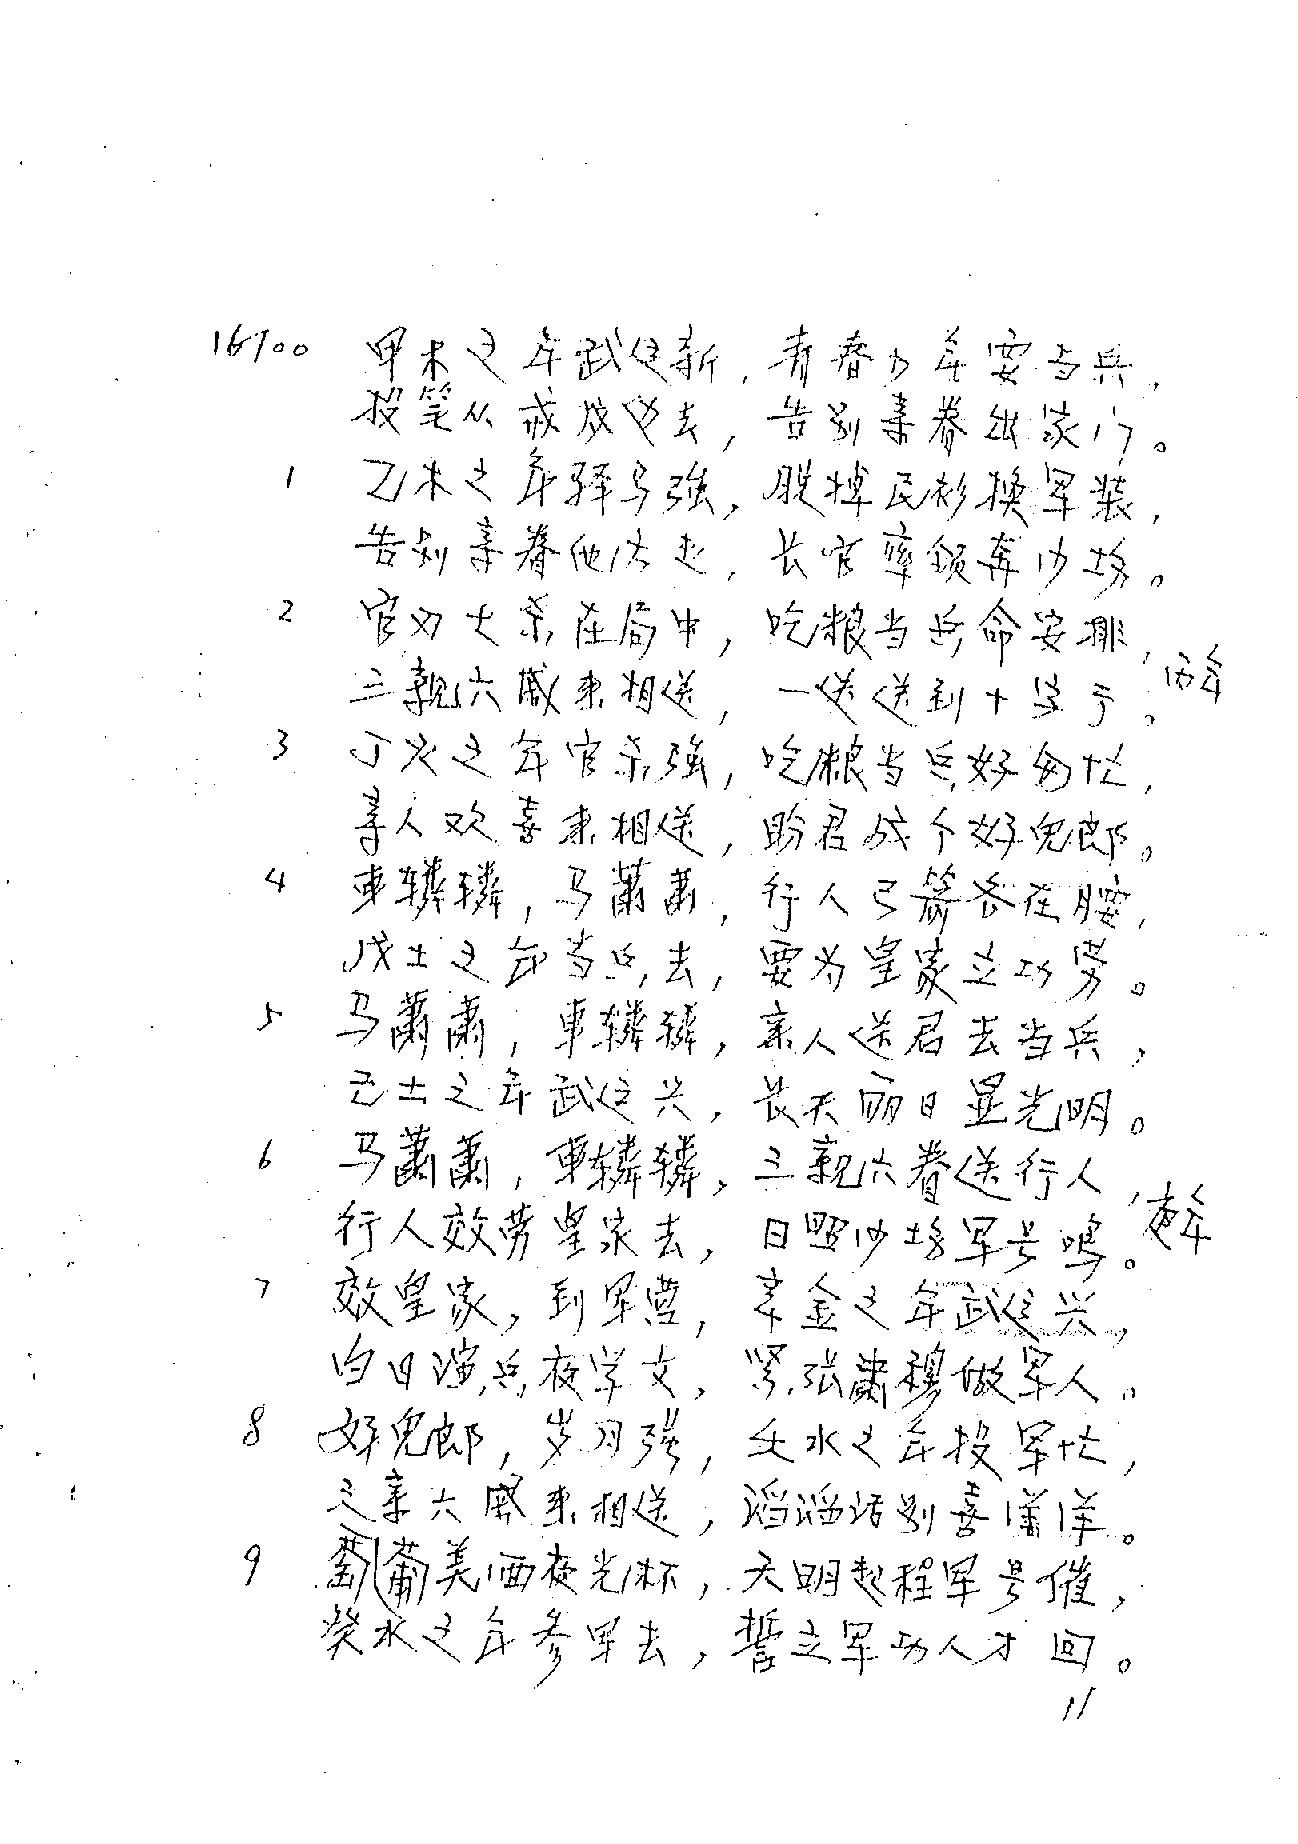 16700 甲木之年武运新，青春少年要当兵，
投笔从戎成边去，告别亲眷出家门。
1 乙木之年驿马强，脱掉民衫换军装，
告别亲眷他法起，长官率领奔沙场。
2 官如七杀在局中，吃粮当兵命安排，
三親六戚来相送，一送送到十字于。丙年
3 丁火之年官杀强，吃粮当兵好匆忙，
亲人欢喜来相送，盼君成个好儿郎。
4 車辚辚，马萧萧，行人弓箭各在腰，
戊土之年当兵去，要为皇家立功劳。
5 马萧萧，車辚辚，亲人送君去当兵，
己土之年武运兴，长天丽日显光明。
6 马萧萧，車辚辚，三親六眷送行人，
行人效劳皇家去，日照沙场军号鸣。庚年
7 效皇家，到军营，辛金之年武运兴，
白日演兵夜学文，紧张肃穆做军人。
8 好儿郎，岁月强，壬水之年投军忙，
三亲六戚来相送，滔滔话别喜洋洋。
9 萄葡美酒夜光杯，天明起程军号催，
癸水之年参军去，誓立军功人才回。
11